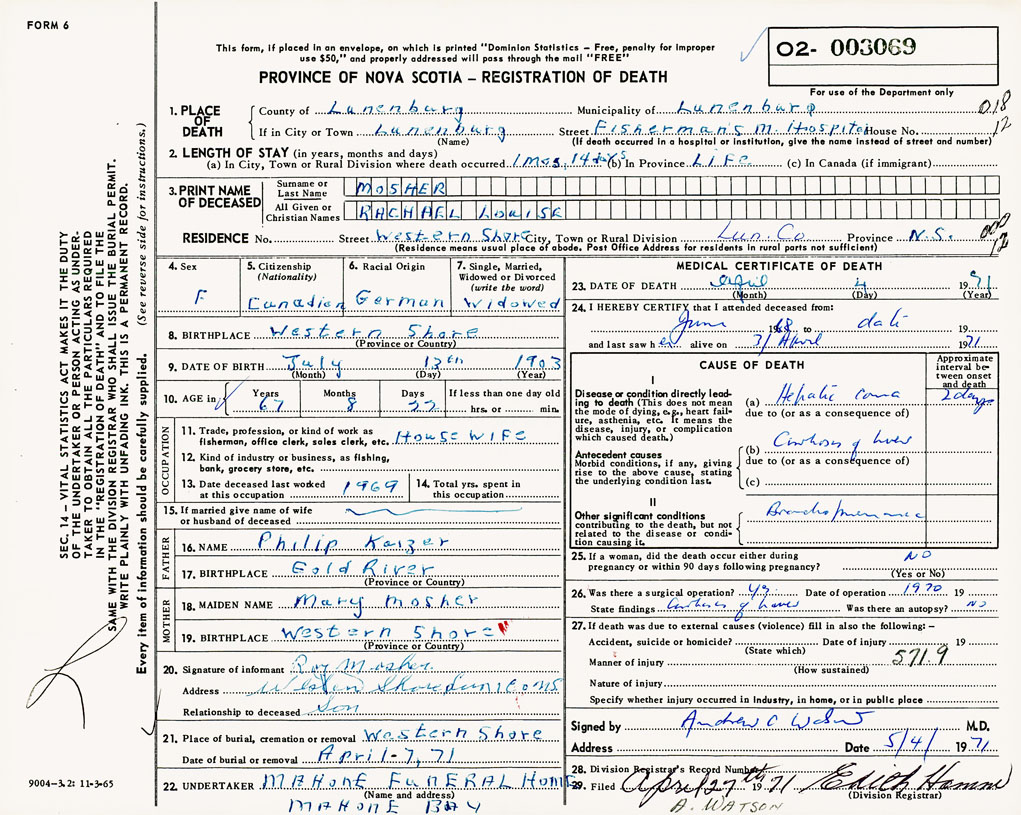 FORM 6
This form, if placed in an envelope, on which is printed "Dominion Statistics – Free, penalty for improper
use $50," and properly addressed will pass through the mail "FREE"
02- 003069
PROVINCE OF NOVA SCOTIA – REGISTRATION OF DEATH
For use of the Department only
1. PLACE OF DEATH
County of Lunenburg Municipality of Lunenburg 018
If in City or Town Lunenburg Street Fisherman's M. Hospital House No. 12
(Name) (If death occurred in a hospital or institution, give the name instead of street and number)
2. LENGTH OF STAY (in years, months and days)
(a) In City, Town or Rural Division where death occurred 1 Mos, 14 dys (b) In Province LIFe (c) In Canada (if immigrant)
3. PRINT NAME OF DECEASED
Surname or Last Name MOSHER
All Given or Christian Names RACHAEL LOUISE
RESIDENCE No. Street Western Shore City, Town or Rural Division Lun. Co Province N.S. 12
(Residence means usual place of abode. Post Office Address for residents in rural parts not sufficient)
4. Sex F
5. Citizenship (Nationality) Canadian
6. Racial Origin German
7. Single, Married, Widowed or Divorced (write the word) Widowed
8. BIRTHPLACE Western Shore
(Province or Country)
9. DATE OF BIRTH July 13th 1903
(Month) (Day) (Year)
10. AGE in Years 67 Months 8 Days 22 If less than one day old hrs. or min.
OCCUPATION
11. Trade, profession, or kind of work as House WIFe
fisherman, office clerk, sales clerk, etc.
12. Kind of industry or business, as fishing,
bank, grocery store, etc.
13. Date deceased last worked at this occupation 1969
14. Total yrs. spent in this occupation
15. If married give name of wife
or husband of deceased
FATHER
16. NAME Philip Kaizer
17. BIRTHPLACE Gold River
(Province or Country)
MOTHER
18. MAIDEN NAME Mary Mosher
19. BIRTHPLACE Western Shore
(Province or Country)
20. Signature of informant Roy Mosher
Address Western Shore Lun Co NS
Relationship to deceased Son
21. Place of burial, cremation or removal Western Shore
Date of burial or removal April-7, 71
22. UNDERTAKER MAHONE FUNERAL HOME
(Name and address)
MAHONE BAY
MEDICAL CERTIFICATE OF DEATH
23. DATE OF DEATH April 4 1971
(Month) (Day) (Year)
24. I HEREBY CERTIFY that I attended deceased from:
June 1968 to date 19
and last saw her alive on 3/ April 1971
CAUSE OF DEATH
Approximate interval between onset and death
I
Disease or condition directly leading to death (This does not mean the mode of dying, e.g., heart failure, asthenia, etc. It means the disease, injury, or complication which caused death.)
(a) Hepatic coma 2 days
due to (or as a consequence of)
Antecedent causes
Morbid conditions, if any, giving rise to the above cause, stating the underlying condition last.
(b) Cirrhoses of liver
due to (or as a consequence of)
(c)
II
Other significant conditions contributing to the death, but not related to the disease or condition causing it.
Bronchopneumonia
25. If a woman, did the death occur either during
pregnancy or within 90 days following pregnancy? NO
(Yes or No)
26. Was there a surgical operation? yes Date of operation 1970 19
State findings Cirrhoses of liver Was there an autopsy? NO
27. If death was due to external causes (violence) fill in also the following:–
Accident, suicide or homicide? Date of injury 19
(State which)
Manner of injury 571.9
(How sustained)
Nature of injury
Specify whether injury occurred in industry, in home, or in public place
Signed by Andrew C M.D.
Address Date 5/4/ 1971
28. Division Registrar's Record Number
29. Filed April 27th 1971 Edith
(Division Registrar)
A. WATSON
SEC. 14 – VITAL STATISTICS ACT MAKES IT THE DUTY
OF THE UNDERTAKER OR PERSON ACTING AS UNDER-
TAKER TO OBTAIN ALL THE PARTICULARS REQUIRED
IN THE "REGISTRATION OF DEATH" AND FILE THE
SAME WITH THE DIVISION REGISTRAR WHO SHALL ISSUE THE BURIAL PERMIT.
WRITE PLAINLY WITH UNFADING INK. THIS IS A PERMANENT RECORD.
Every item of information should be carefully supplied. (See reverse side for instructions.)
9004–3.2: 11-3-65